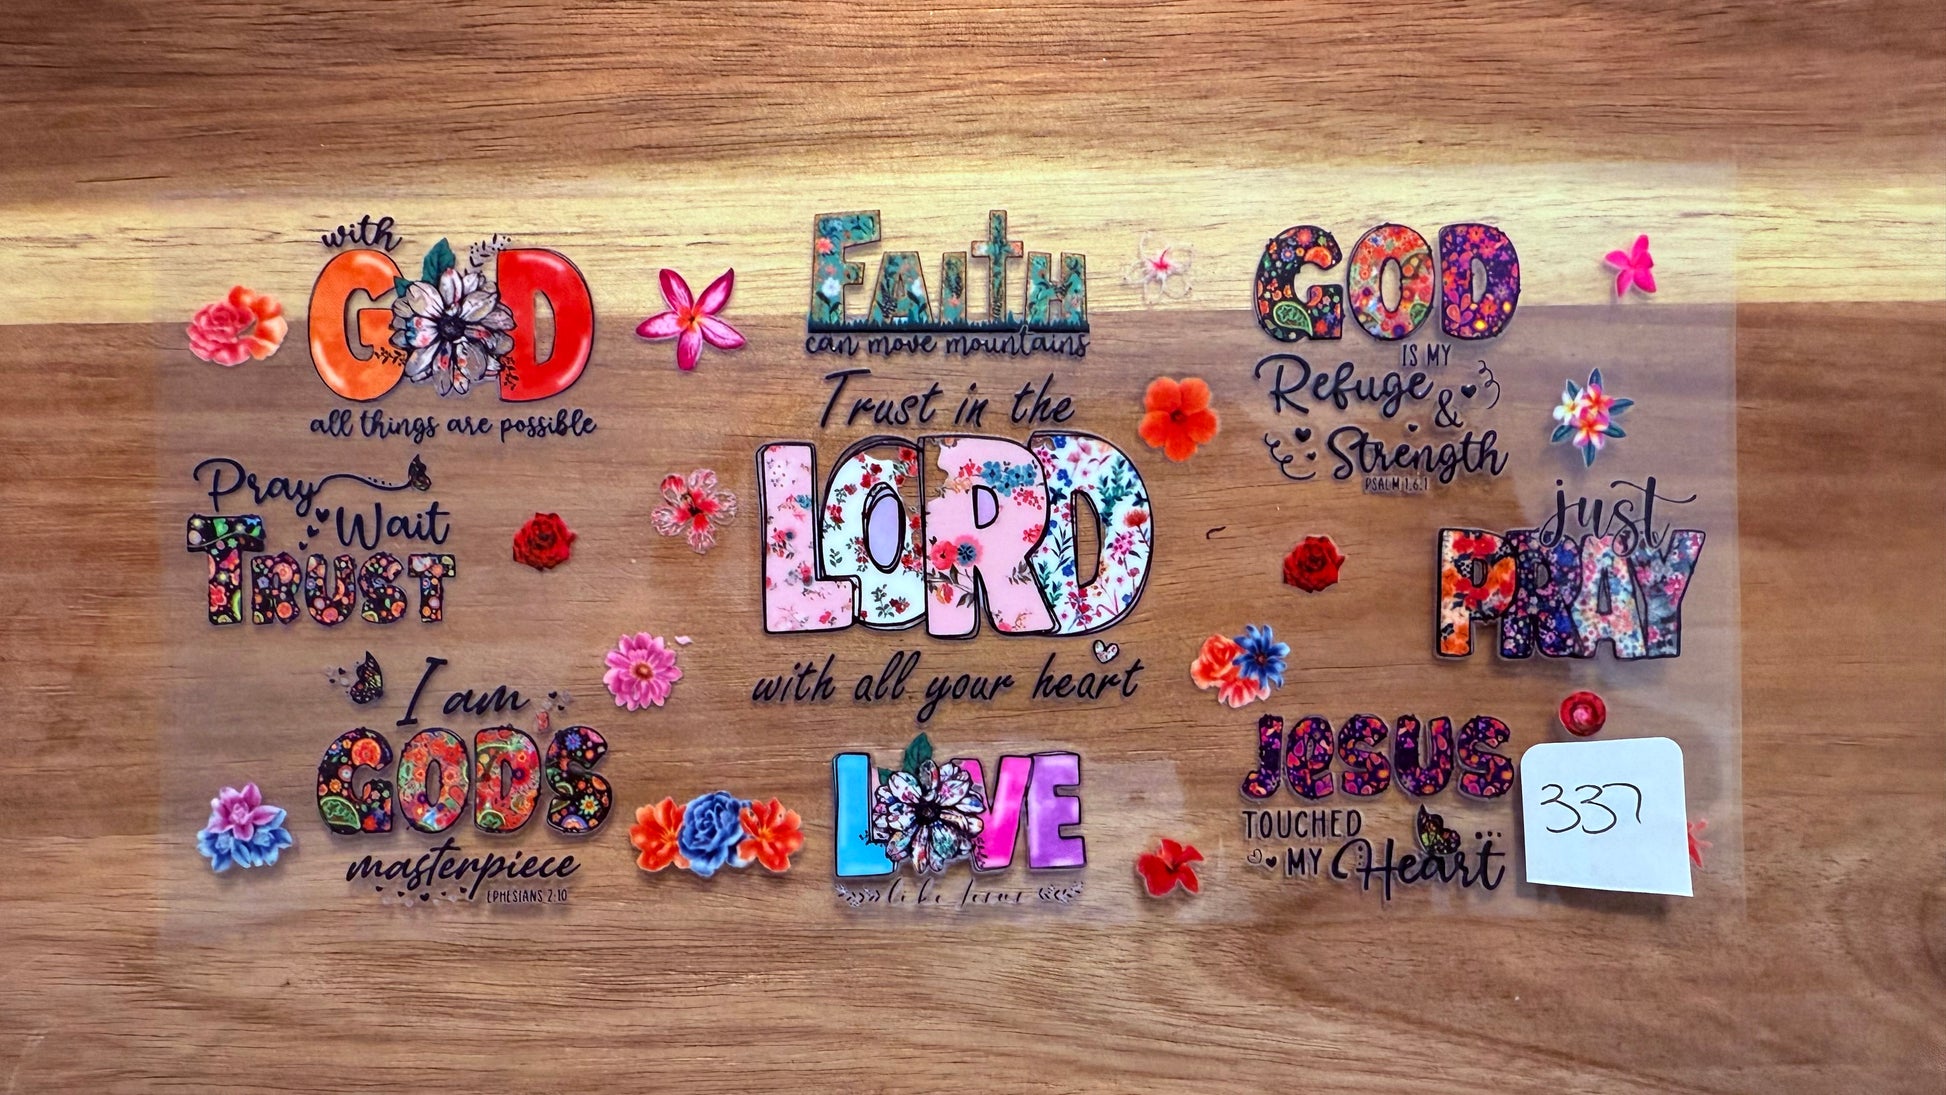 with
GOD
all things are possible
Pray
Wait
TRUST
I am
GOD'S
masterpiece
EPHESIANS 2:10
FAITH
can move mountains
Trust in the
LORD
with all your heart
LOVE
like Jesus
GOD
IS MY
Refuge
&
Strength
PSALM 1.6.1
just
PRAY
JESUS
TOUCHED
MY Heart
337